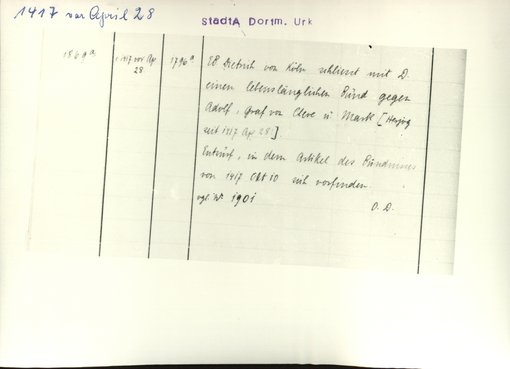 1417 vor April 28
StadtA Dortm. Urk
1869a
1417 vor Ap 28
1796a
EB Dietrich von Köln schliesst mit D.
einen lebenslänglichen Bund gegen
Adolf, Graf von Cleve u. Mark [Herzog
seit 1417 Ap 28].
Entwurf, in dem Artikel des Bündnisses
von 1417 Okt 10 sich vorfinden.
vgl. Nr 1901
O. D.